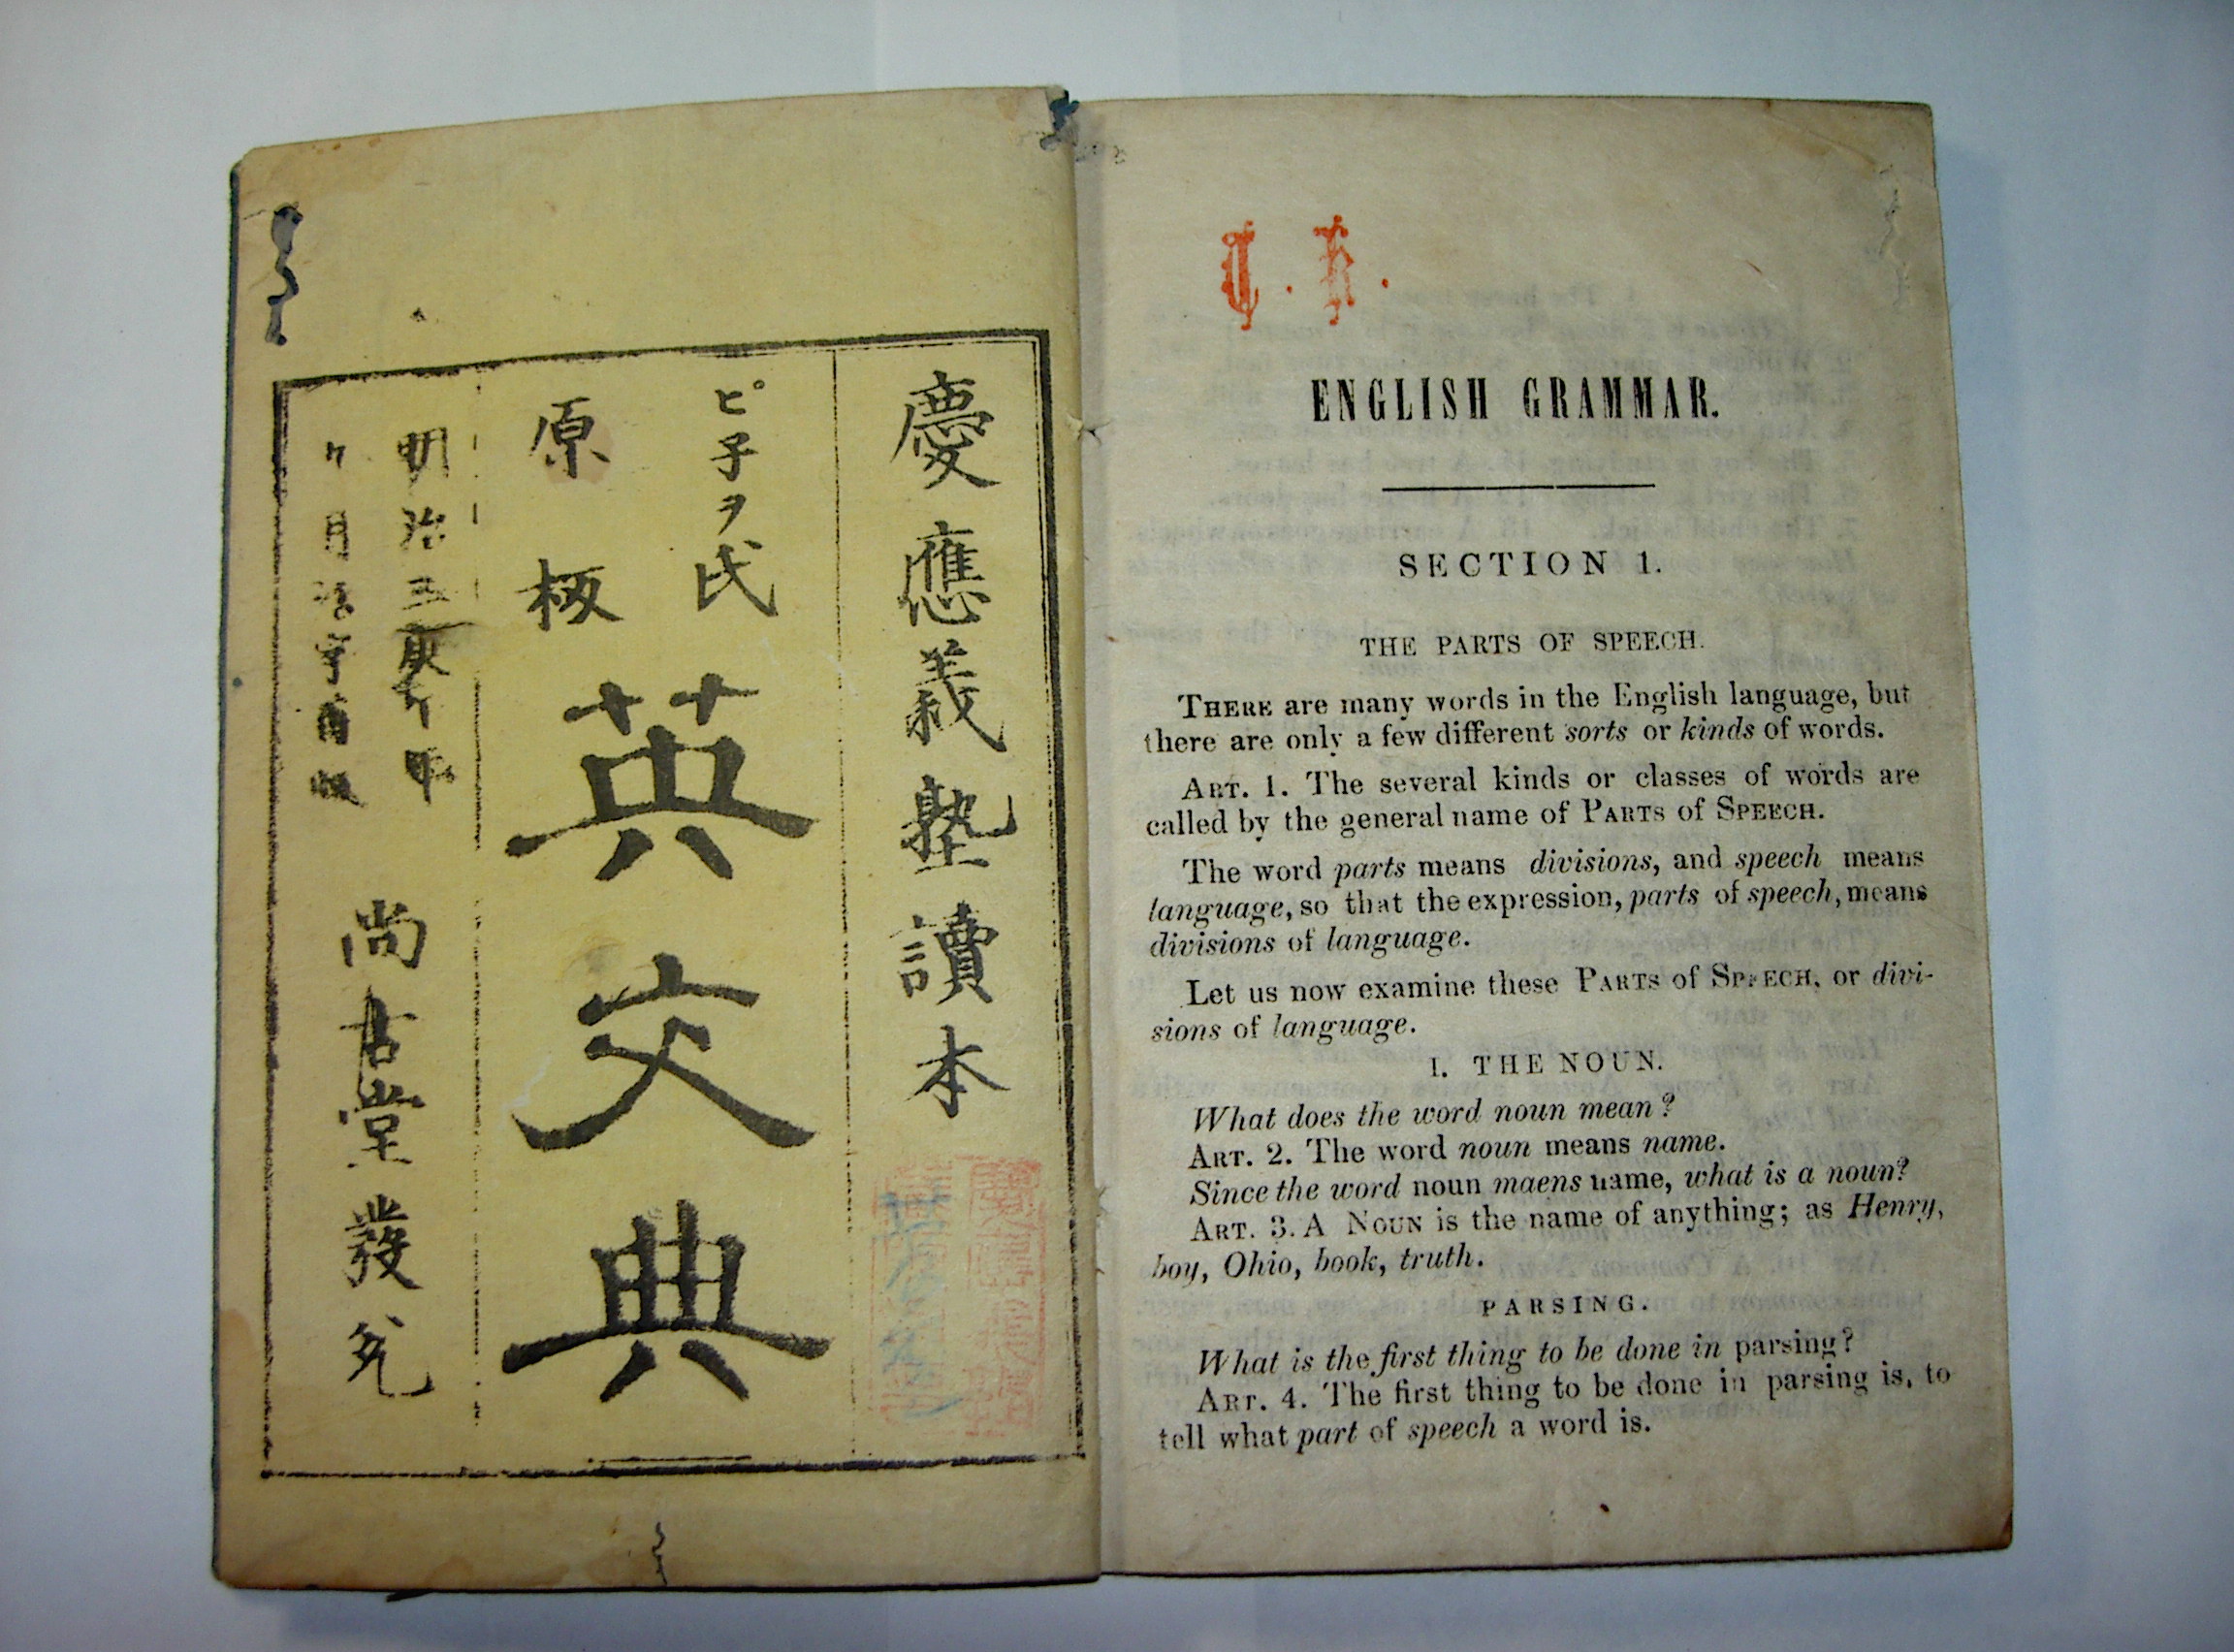 慶應義塾讀本
ピ子ヲ氏
原板
英文典
明治三庚午
尚古堂發兌
ENGLISH GRAMMAR.
SECTION 1.
THE PARTS OF SPEECH.
THERE are many words in the English language, but
there are only a few different sorts or kinds of words.
ART. 1. The several kinds or classes of words are
called by the general name of PARTS of SPEECH.
The word parts means divisions, and speech means
language, so that the expression, parts of speech, means
divisions of language.
Let us now examine these PARTS of SPEECH, or divi-
sions of language.
I. THE NOUN.
What does the word noun mean?
ART. 2. The word noun means name.
Since the word noun maens name, what is a noun?
ART. 3. A NOUN is the name of anything; as Henry,
boy, Ohio, book, truth.
PARSING.
What is the first thing to be done in parsing?
ART. 4. The first thing to be done in parsing is, to
tell what part of speech a word is.